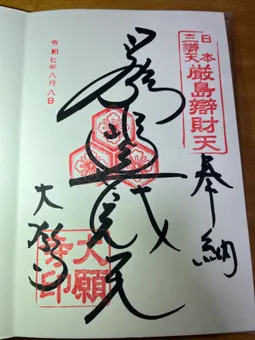 日本
三辯天
厳島辯財天
奉納
大願寺
大願
寺印
令和七年八月八日